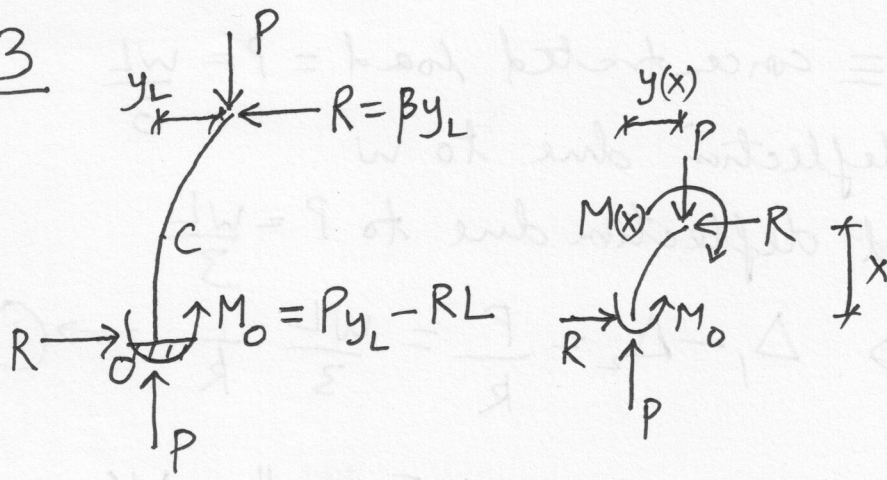 3
P
y_L
R = βy_L
C
R
O
M_O = Py_L - RL
P
y(x)
P
M(x)
R
x
R
M_O
P